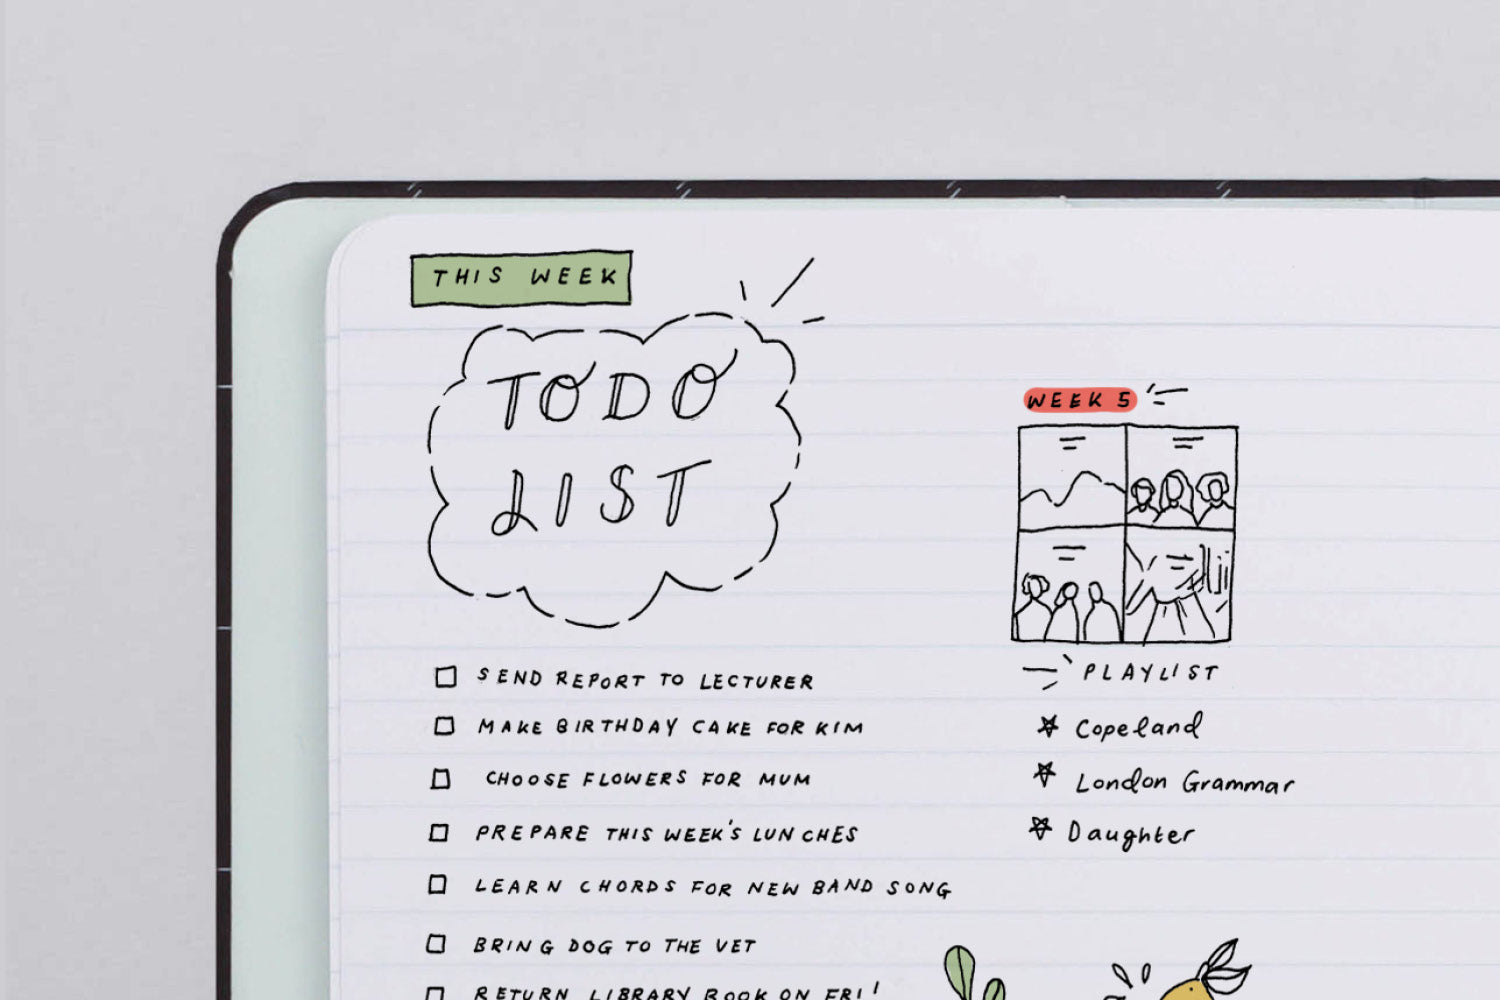 THIS WEEK
TO DO
LIST
SEND REPORT TO LECTURER
MAKE BIRTHDAY CAKE FOR KIM
CHOOSE FLOWERS FOR MUM
PREPARE THIS WEEK'S LUNCHES
LEARN CHORDS FOR NEW BAND SONG
BRING DOG TO THE VET
RETURN LIBRARY BOOK ON FRI!
WEEK 5
PLAYLIST
Copeland
London Grammar
Daughter